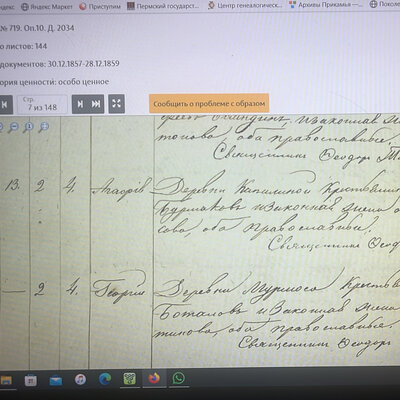 ндекс Яндекс Маркет Приступим Пермский государст... Центр генеалогичес... Архивы Прикамья —... Поколе
№ 719. Оп.10. Д. 2034
о листов: 144
документов: 30.12.1857-28.12.1859
ория ценности: особо ценное
Стр.
7 из 148
Сообщить о проблеме с образом
и законная жена
оба православные.
Священникъ Феодоръ
13. 2 4. Деревни
Бурмаковъ и законная жена
сова, оба православные.
Священникъ Феодо
— 2 4. Георгій Деревни Мурмоса Крестья
Боталовъ и законная жена
тинова, оба православные.
Священникъ Феодоръ